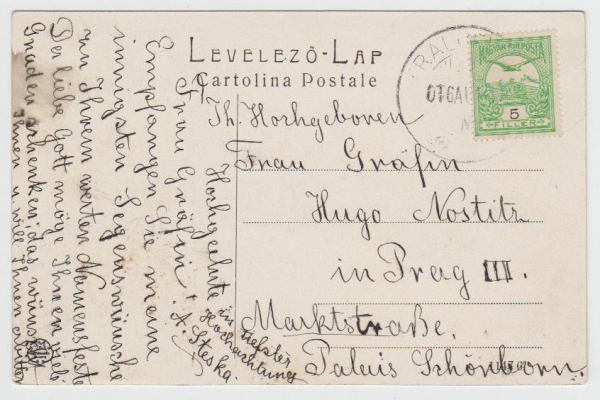 LEVELEZŐ-LAP
Cartolina Postale
MAGYAR KIR. POSTA
5
FILLER
Th. Hochgeboren
Frau Gräfin
Hugo Nostitz
in Prag III.
Marktstraße,
Palais Schönborn.
Hochgeehrte
Frau Gräfin!
Empfangen Sie meine
innigsten Segenswünsche
zu Ihrem werten Namensfeste
Der liebe Gott möge Ihnen viele
Gnaden schenken, das wünscht
Ihnen u. will Ihnen erbitten
in tiefster
Hochachtung
A. Steska.